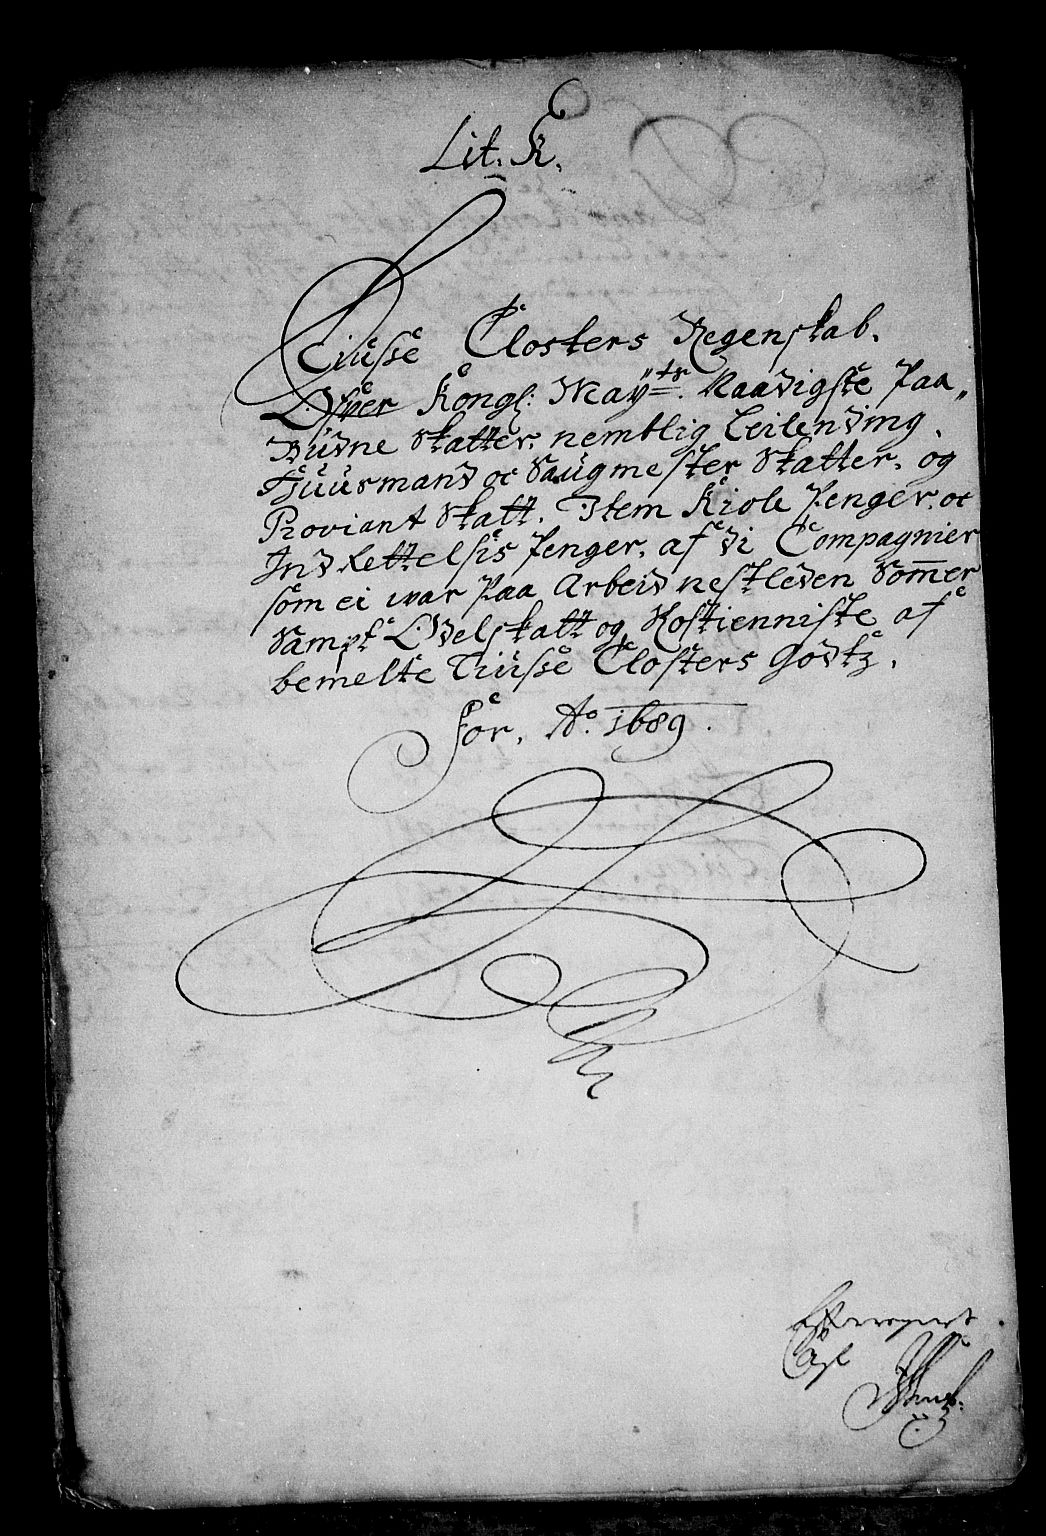 Lit. K.
Tiusse Closters Regenskab.
Ofver Kongl: May:ts Naadigste Paa„
Budne Skatter, nemblig Leilending,
Huusmand oc Saugmester Skatter, og
Proviant Skatt. Item Kiole Penger, oc
Ind Rettelsis Penger, af di Compagnier
som ei war Paa Arbeid nestleden Sommer
Sampt Odelskatt og Rostienniste af
bemelte Tiusse Closters Godtz.
for, Ao. 1689.